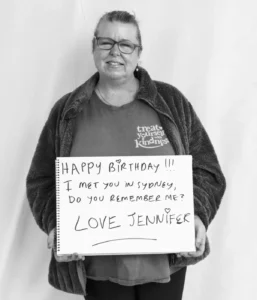 treat
yourself
with
kindness
HAPPY BIRTHDAY !!!
I MET YOU IN SYDNEY,
DO YOU REMEMBER ME?
LOVE JENNIFER